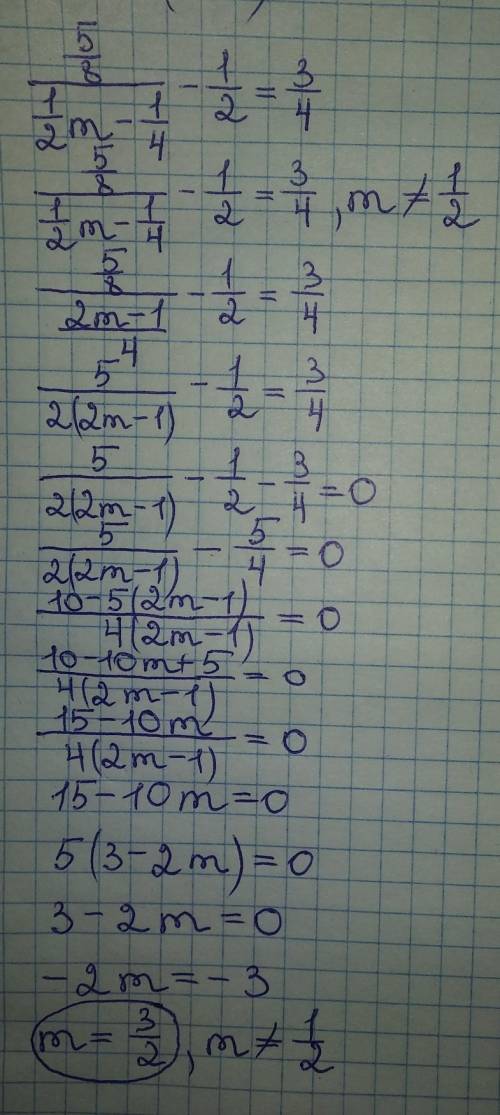 5/8 / (1/2 m - 1/4) - 1/2 = 3/4
5/8 / (1/2 m - 1/4) - 1/2 = 3/4, m ≠ 1/2
5/8 / ((2m-1)/4) - 1/2 = 3/4
5/(2(2m-1)) - 1/2 = 3/4
5/(2(2m-1)) - 1/2 - 3/4 = 0
5/(2(2m-1)) - 5/4 = 0
(10-5(2m-1))/(4(2m-1)) = 0
(10-10m+5)/(4(2m-1)) = 0
(15-10m)/(4(2m-1)) = 0
15-10m=0
5(3-2m)=0
3-2m=0
-2m=-3
m= 3/2, m ≠ 1/2